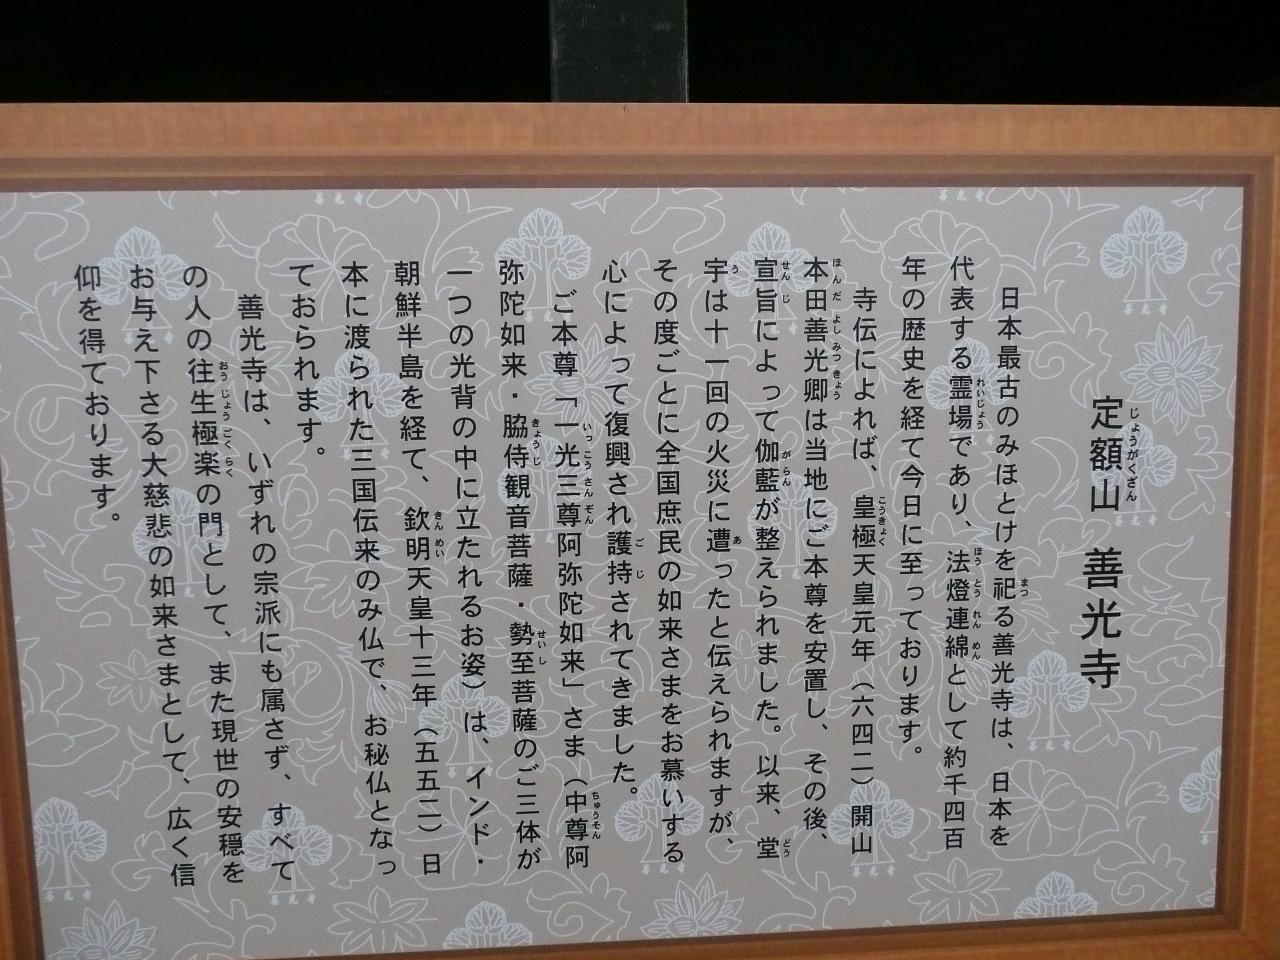 定額山　善光寺
日本最古のみほとけを祀る善光寺は、日本を
代表する霊場であり、法燈連綿として約千四百
年の歴史を経て今日に至っております。
寺伝によれば、皇極天皇元年（六四二）開山
本田善光卿は当地にご本尊を安置し、その後、
宣旨によって伽藍が整えられました。以来、堂
宇は十一回の火災に遭ったと伝えられますが、
その度ごとに全国庶民の如来さまをお慕いする
心によって復興され護持されてきました。
ご本尊「一光三尊阿弥陀如来」さま（中尊阿
弥陀如来・脇侍観音菩薩・勢至菩薩のご三体が
一つの光背の中に立たれるお姿）は、インド・
朝鮮半島を経て、欽明天皇十三年（五五二）日
本に渡られた三国伝来のみ仏で、お秘仏となっ
ております。
善光寺は、いずれの宗派にも属さず、すべて
の人の往生極楽の門として、また現世の安穏を
お与え下さる大慈悲の如来さまとして、広く信
仰を得ております。